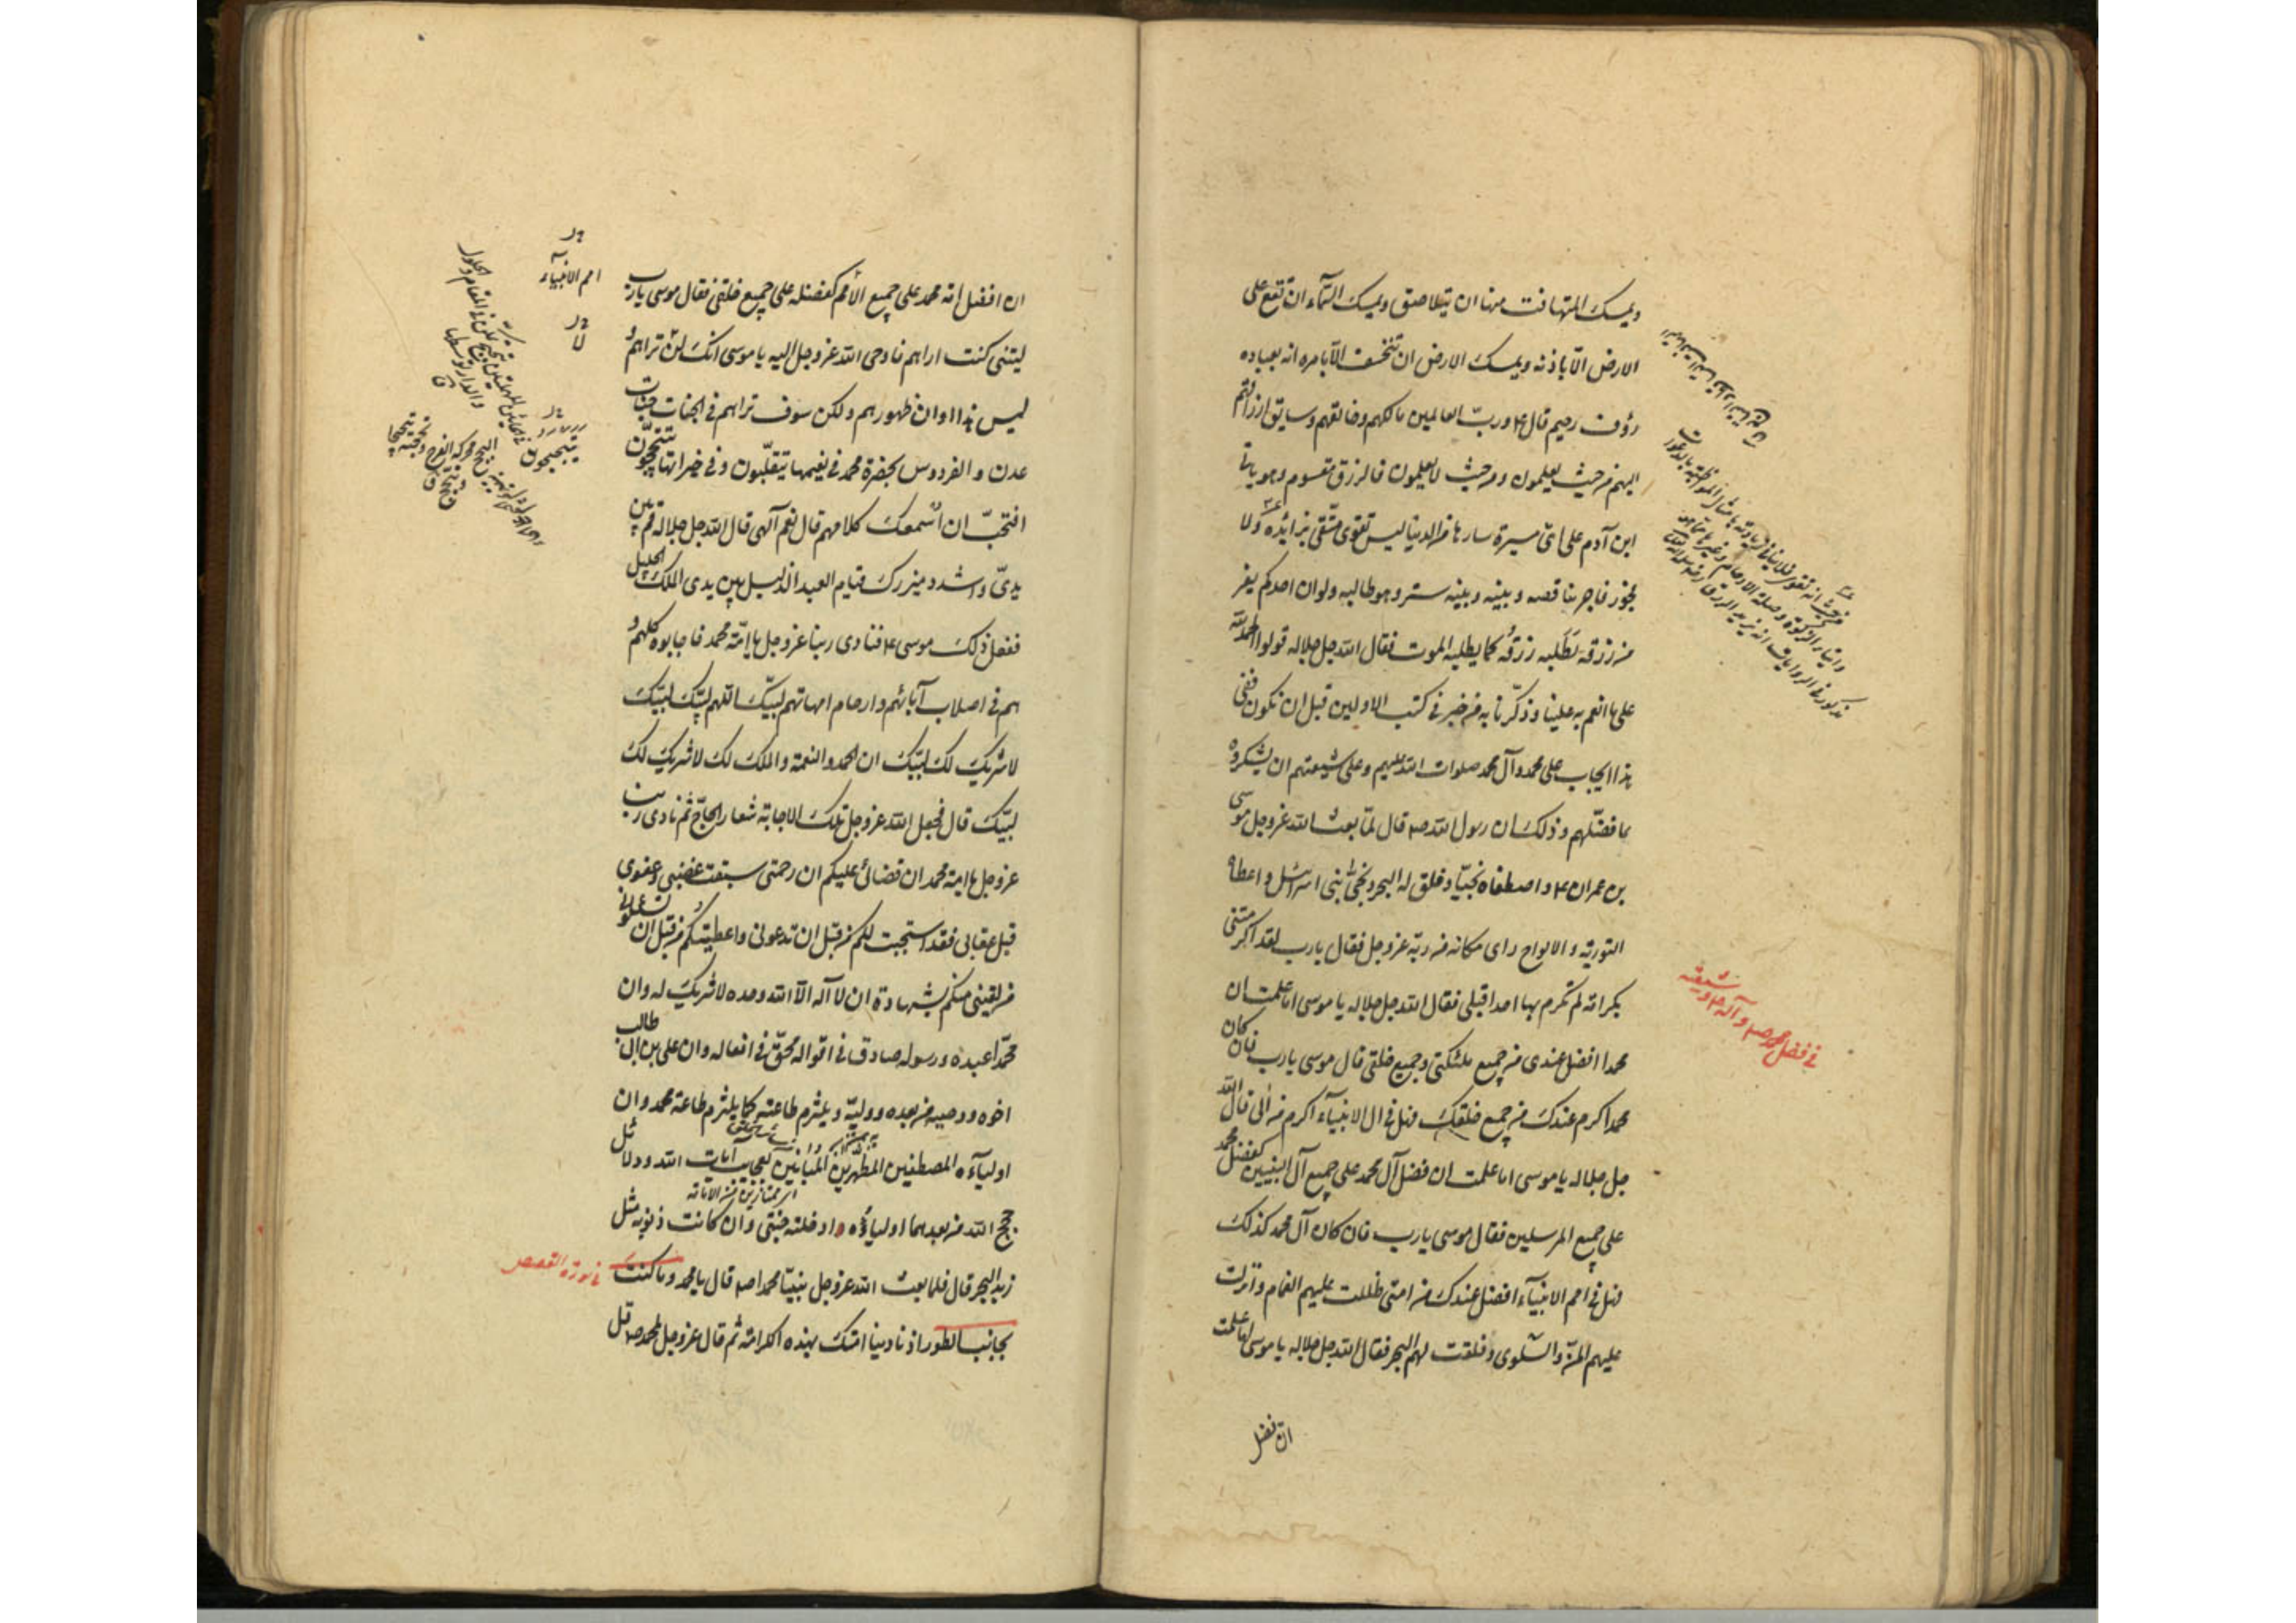 ويمسك المتهافت منها ان يتلاصق ويمسك السّماء ان تقع على
الارض الّا باذنه ويمسك الارض ان تنخسف الّا بامره انه بعباده
رؤف رحيم قال ع و ربّ العالمين مالكهم وخالقهم وسايق ارزاقهم
اليهم من حيث يعلمون ومن حيث لا يعلمون فالرزق مقسوم وهو ياتى
ابن آدم على اىّ مسيرة سارها من الدنيا ليس تقوى متّقى بزايده ولا
فجور فاجر بناقصه وبينه وبينه ستر وهو طالبه ولو ان احدكم يفر
من رزقه تطلبه رزقه كما يطلبه الموت فقال الله جل جلاله قولوا الحمد لله
على ما انعم به علينا وذكّرنا به من خير فى كتب الاولين قبل ان نكون ففى
هذا ايجاب على محمد وآل محمد صلوات الله عليهم وعلى شيعتهم ان يشكروه
بما فضّلهم وذلك ان رسول الله ص قال لمّا بعث الله عز وجل موسى
بن عمران ع واصطفاه نجيّا وفلق له البحر ونجّى بنى اسرائيل واعطاه
التورية والالواح راى مكانه من ربّه عز وجل فقال يا رب لقد اكرمتنى
بكرامة لم تكرم بها احدا قبلى فقال الله جل جلاله يا موسى اما علمت ان
محمدا افضل عندى من جميع ملئكتى وجميع خلقى قال موسى يا رب فان كان
محمدا اكرم عندك من جميع خلقك فهل فى ال الانبيآء اكرم من آلى قال الله
جل جلاله يا موسى اما علمت ان فضل آل محمد على جميع آل النبيين كفضل محمد
على جميع المرسلين فقال موسى يا رب فان كان آل محمد كذلك
فهل فى امم الانبيآء افضل عندك من امتى ظللت عليهم الغمام وانزلت
عليهم المنّ والسّلوى وفلقت لهم البحر فقال الله جل جلاله يا موسى اما علمت
ان فضل
فى فضل محمد ص وآله ع وشيعته
ان افضل امة محمد على جميع الأمم كفضله على جميع خلقى فقال موسى يا رب
ليتنى كنت اراهم فاوحى الله عز وجل اليه يا موسى انك لن تراهم
ليس هذا اوان ظهورهم ولكن سوف تراهم فى الجنات جنات
عدن والفردوس بحضرة محمد فى نعيمها يتقلّبون وفى خيراتها يتبجّحون
افتحبّ ان اسمعك كلامهم قال نعم آلهى قال الله جل جلاله قم بين
يدىّ واشدد ميزرك قيام العبد الذليل بين يدى الملك الجليل
ففعل ذلك موسى ع فنادى ربنا عز وجل يا امّة محمد فاجابوه كلهم و
هم فى اصلاب آبائهم وارحام امهاتهم لبّيك اللهم لبّيك لبّيك
لا شريك لك لبّيك ان الحمد والنعمة والملك لك لا شريك لك
لبّيك قال فجعل الله عز وجل تلك الاجابة شعار الحاجّ ثم نادى ربنا
عز وجل يا امة محمد ان قضائى عليكم ان رحمتى سبقت غضبى وعفوى
قبل عقابى فقد استجبت لكم من قبل ان تدعونى واعطيتكم من قبل ان تسئلونى
من لقينى منكم بشهادة ان لا آله الّا الله وحده لا شريك له وان
محمّدا عبده ورسوله صادق فى اقواله محقّ فى افعاله وان على بن ابى طالب
اخوه ووصيه من بعده ووليّه ويلتزم طاعته كما يلتزم طاعة محمد وان
اوليآءه المصطفين المطهرين المبانين بعجايب آيات الله ودلائل
حجج الله من بعدهما اولياؤه ادخلته جنتى وان كانت ذنوبه مثل
زبد البحر قال فلما بعث الله عز وجل نبيّنا محمدا ص قال يا محمد وما كنت
بجانب الطور اذ نادينا امتك بهذه الكرامة ثم قال عز وجل لمحمد ص قل
امم الانبيآء
لا
يتبجحون
فى سورة القصص